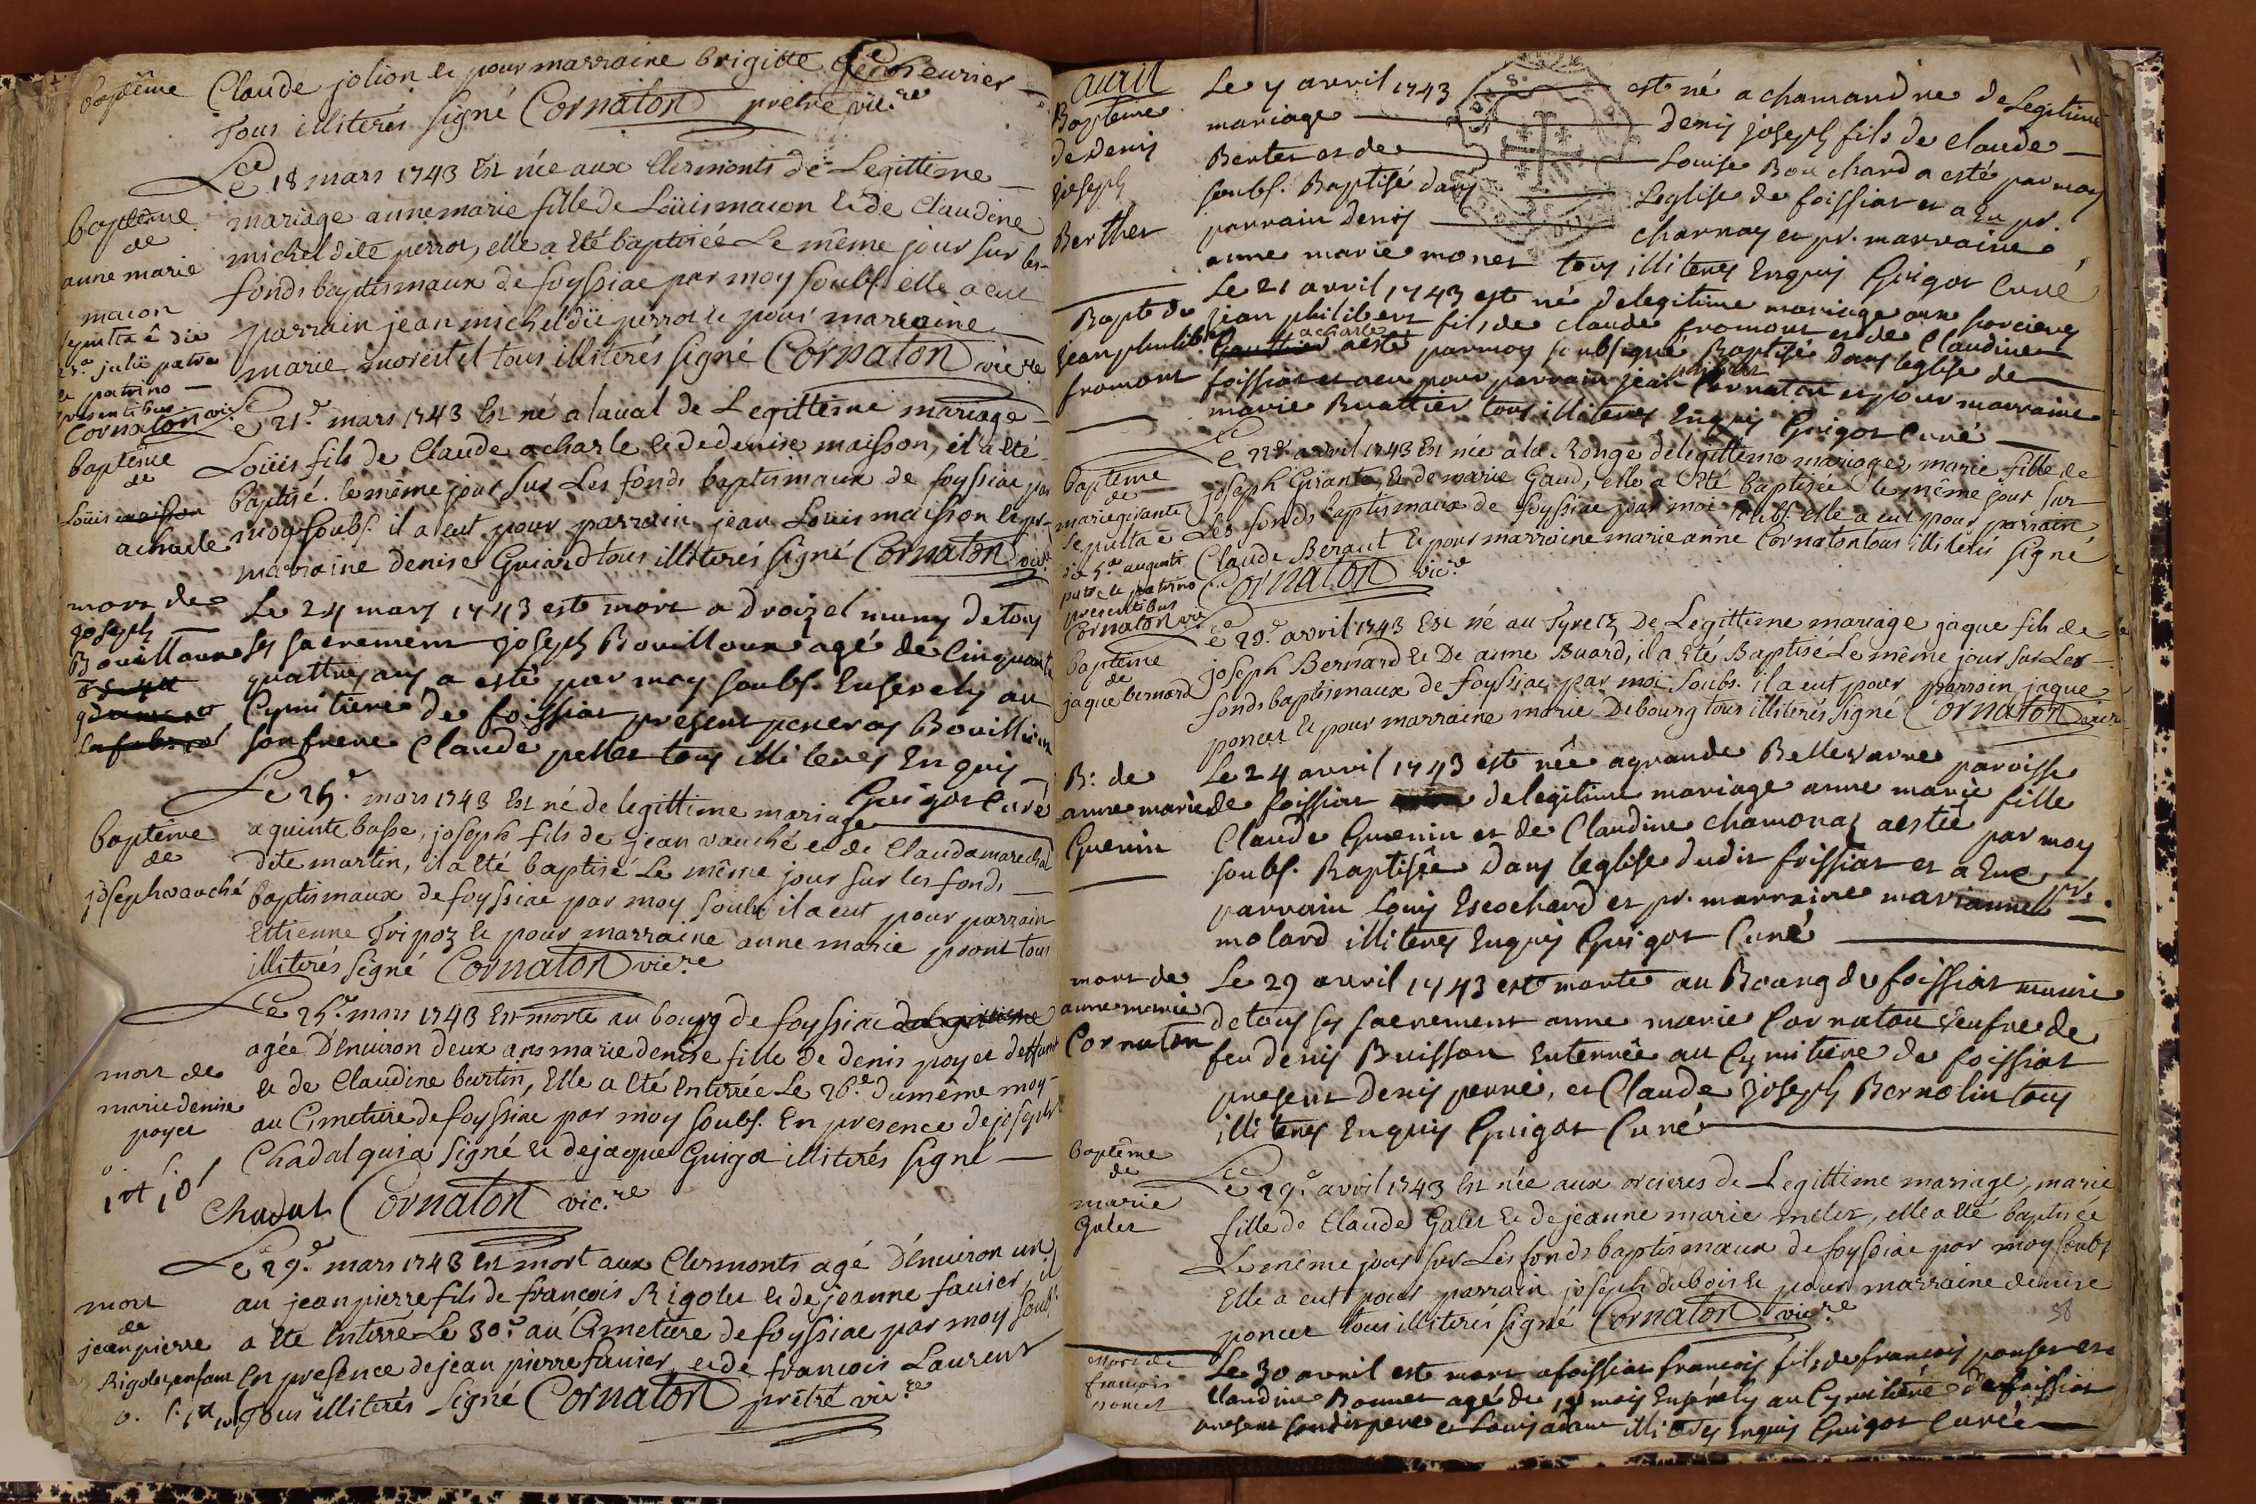 baptême Claude jolion et pour marraine brigitte
Tous illiterés signé Cornaton prêtre vic.re
Le 18 mars 1743 Est née aux Clermonts de Legittime
baptême
de
anne marie
macon
mariage annemarie fille de Loüis macon et de Claudine
michel dite perrot, elle a été baptisée Le même jour sur les
fonds baptismaux de foyssiac par moy soubs. elle a eut
parrain jean michel dit perrot et pour marraine
marie morestel tous illiterés signé Cornaton vic.re
sepulta ê die
julii patre
et patrino
presentibus
Cornaton vic.
Le 21.e mars 1743 Est né a laval de Legittime mariage
baptême
de
Loüis maisson
acharle
Loüis fils de Claude acharle et de denise maisson, il a été
baptisé le même jour sur Les fonds baptismaux de foyssiac par
moy soubs. il a eut pour parrain jean Louis maisson et pr
marraine denise Guiard tous illiterés signé Cornaton vic.
mort de
joseph
Bouilloux
Le 24 mars 1743 est mort a Droizel muny de tous
ses sacrement joseph Bouilloux agé de Cinquante
quattres ans a esté par moy soubs. Enseveli au
Cymitiere de foissiat present Bouilloux
son frere Claude pellet tous illiteres Enquis
Guigot Curé
Le 25.e mars 1743 Est né de legittime mariage
baptême
de
joseph vauché
a quinte basse, joseph fils de jean vauché et de Clauda marechal
dite martin, il a été baptisé Le même jour sur les fonds
baptismaux de foyssiac par moy soubs. il a eut pour parrain
Ettienne Tripoz et pour marraine anne marie piront tous
illiterés signé Cornaton vic.re
Le 25.e mars 1743 Est morte au bourg de foyssiac de legittime
mort de
marie denise
poyet
agée D'enuiron deux ans marie denise fille de denis poyet deffunt
et de Claudine burtin, Elle a été Enterrée Le 26.e du même moy
au Cimetiere de foyssiac par moy soubs. En presence de joseph
Chadal qui a signé et de jaque Guigot illiterés signé
Chadal Cornaton vic.re
Le 29.e mars 1743 Est mort aux Clermonts agé D'enuiron un
mort
de
jean pierre
Rigolet enfant
an jean pierre fils de francois Rigolet et de jeanne fauier, il
a été Enterré Le 30.e au Cimetiere de foyssiac par moy soubs.
En presence de jean pierre fauier, et de francois Laurent
Tous illiterés signé Cornaton prêtre vic.re
avril
Bapteme
de denis
joseph
Berthet
Le 4 avril 1743 est né a chamandre de Legitime
mariage Denis joseph fils de Claude
Bertet et de Louise Bouchard a esté par moy
soubs. Baptisé dans Leglise de foissiat et a Eu pr.
parrain Denis charnay et pr. marraine
anne marie monet tous illiteres Enquis Guigot Curé
Bapt. de
jean philibert
fromont
Le 21 avril 1743 est né de legitime mariage aux sorcieres
jean philibert fils de Claude fromont et de Claudine
acharle a esté par moy soubsigné Baptisé dans leglise de
foissiat et a eu pour parrain jean Cornaton et pour marraine
marie Buattier tous illiteres Enquis Guigot Curé
Le 22.e avril 1743 Est née a la Ronge de legittime mariage, marie fille de
baptême
de
marie girante
joseph Girante, et de marie Gaud, elle a été baptisée le même jour sur
Les fonds baptismaux de foyssiac par moi soubs. elle a eut pour parrain
Claude Beraut et pour marraine marie anne Cornaton tous illiterés signé
Cornaton vic.e
sepulta ê
die 5.a augusti
patre et patrino
presentibus
Cornaton vic.
Le 23.e avril 1743 Est né au Tyretz De Legittime mariage jaque fils de
baptême
de
jaque bernard
joseph Bernard et De anne Buard, il a été Baptisé Le même jour sur Les
fonds baptismaux de foyssiac par moi soubs. il a eut pour parrain jaque
poncet et pour marraine marie Debourg tous illiterés signé Cornaton vic.re
B: de
anne marie
Guenin
Le 24 avril 1743 est née a grande Bellevavre paroisse
de foissiat de legitime mariage anne marie fille
Claude Guenin et de Claudine chamonaz a estée par moy
soubs. Baptisée Dans leglise dudit foissiat et a Eue pr.
parrain Louis Escochard et pr. marraine marianne
molard illiteres Enquis Guigot Curé
mort de
anne marie
Cornaton
Le 29 avril 1743 est morte au Bourg de foissiat munie
de tous ses sacrement anne marie Cornaton veufve de
feu denis Buisson Enterrée au Cymitiere de foissiat
present Denis perré, et Claude joseph Bernolin tous
illiteres Enquis Guigot Curé
baptême
de
marie
Galet
Le 29.e avril 1743 Est née aux orcieres de Legittime mariage, marie
fille de Claude Galet et de jeanne marie melet, elle a été baptisée
Le même jour sur Les fonds baptismaux de foyssiac par moy soubs
Elle a eut pour parrain joseph dubois et pour marraine denise
poncet tous illiterés signé Cornaton vic.re
38
mort de
françois
poncet
Le 30 avril est mort a foissiat francois fils de francois ponset et
Claudine Bonnet agé de mois Enseveli au Cymitiere de foissiat
present son dit pere et Louis adam illiteres Enquis Guigot Curé